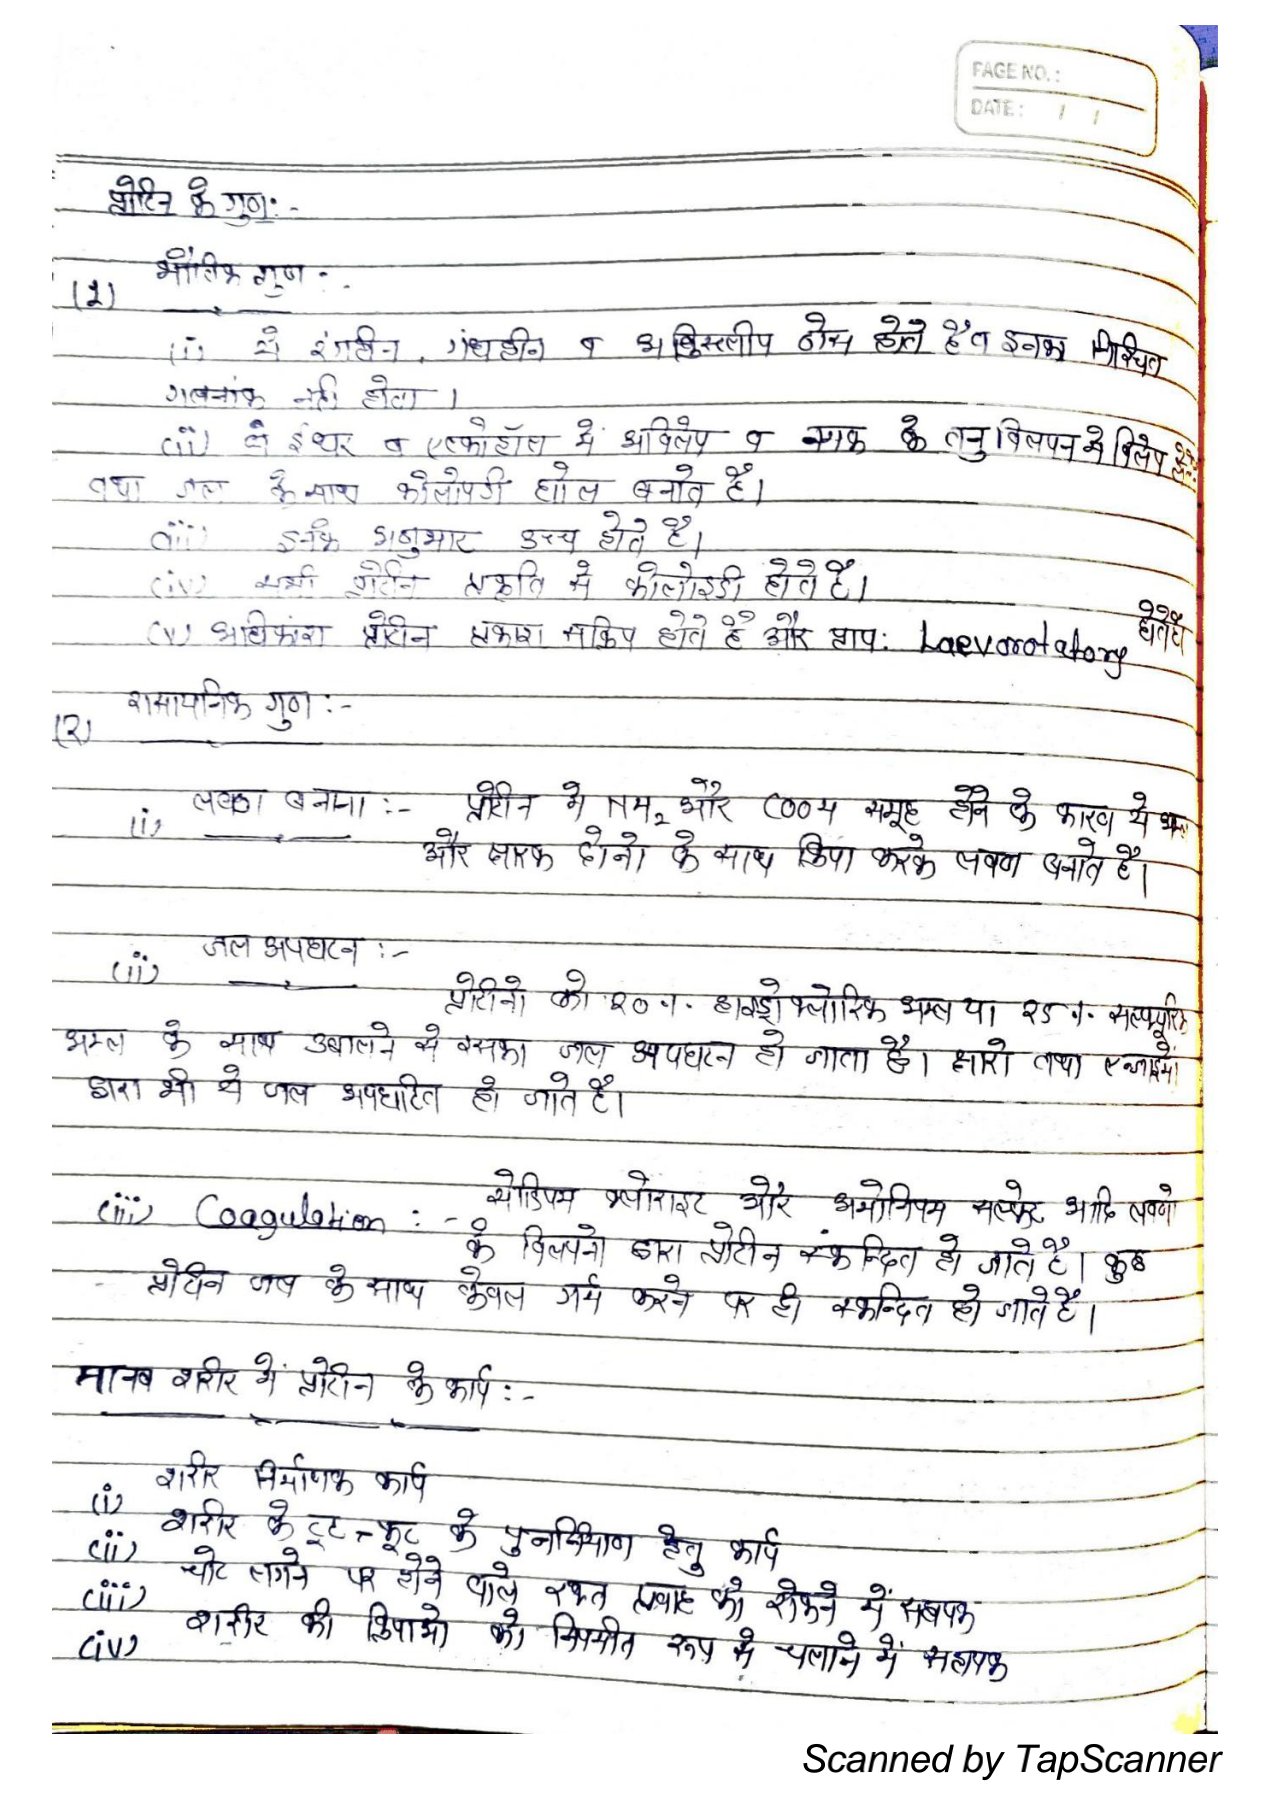 PAGE NO. :
DATE : / /
प्रोटिन के गुण: -
(1) भौतिक गुण :-
(i) ये रंगहीन, गंधहीन व अक्रिस्टलीय ठोस होते है व इनका निश्चित
गलनांक नही होता ।
(ii) ये ईथर व एल्कोहॉल में अविलेय व नमक के तनु विलयन मे विलेय होते है
तथा जल के साथ कोलोयडी घोल बनाते है।
(iii) इनके अणुभार उच्च होते है।
(iv) सभी प्रोटीन प्रकृति से कोलोइडी होते है।
(v) अधिकांश प्रोटीन प्रकाश सक्रिय होते है और प्राय: Laevorotatory होते है
(2) रासायनिक गुण :-
(i) लवण बनना :- प्रोटीन मे NH2 और COOH समूह होने के कारण ये अम्ल
और क्षारक दोनो के साथ क्रिया करके लवण बनाते है।
(ii) जल अपघटन :-
प्रोटीनो को 20 % हाइड्रोक्लोरिक अम्ल या 25 % सल्फ्यूरिक
अम्ल के साथ उबालने से इसका जल अपघटन हो जाता है। क्षारो तथा एन्जाइमो
द्वारा भी ये जल अपघटित हो जाते है।
(iii) Coagulation : - सोडियम क्लोराइट और अमोनियम सल्फेट आदि लवणो
के विलयनो द्वारा प्रोटीन स्कन्दित हो जाते है। कुछ
प्रोटीन जल के साथ केवल गर्म करने पर ही स्कन्दित हो जाते है।
मानव शरीर में प्रोटीन के कार्य :-
(i) शरीर निर्माणक कार्य
(ii) शरीर के टूट-फूट के पुनर्निमाण हेतु कार्य
(iii) चोट लगने पर होने वाले रक्त प्रवाह को रोकने में सहायक
(iv) शरीर की क्रियाओ को नियमीत रूप से चलाने में सहायक
Scanned by TapScanner